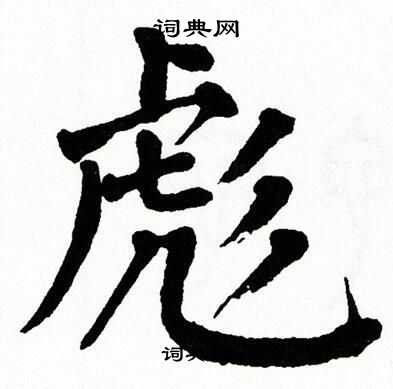 词典网
彪
词典